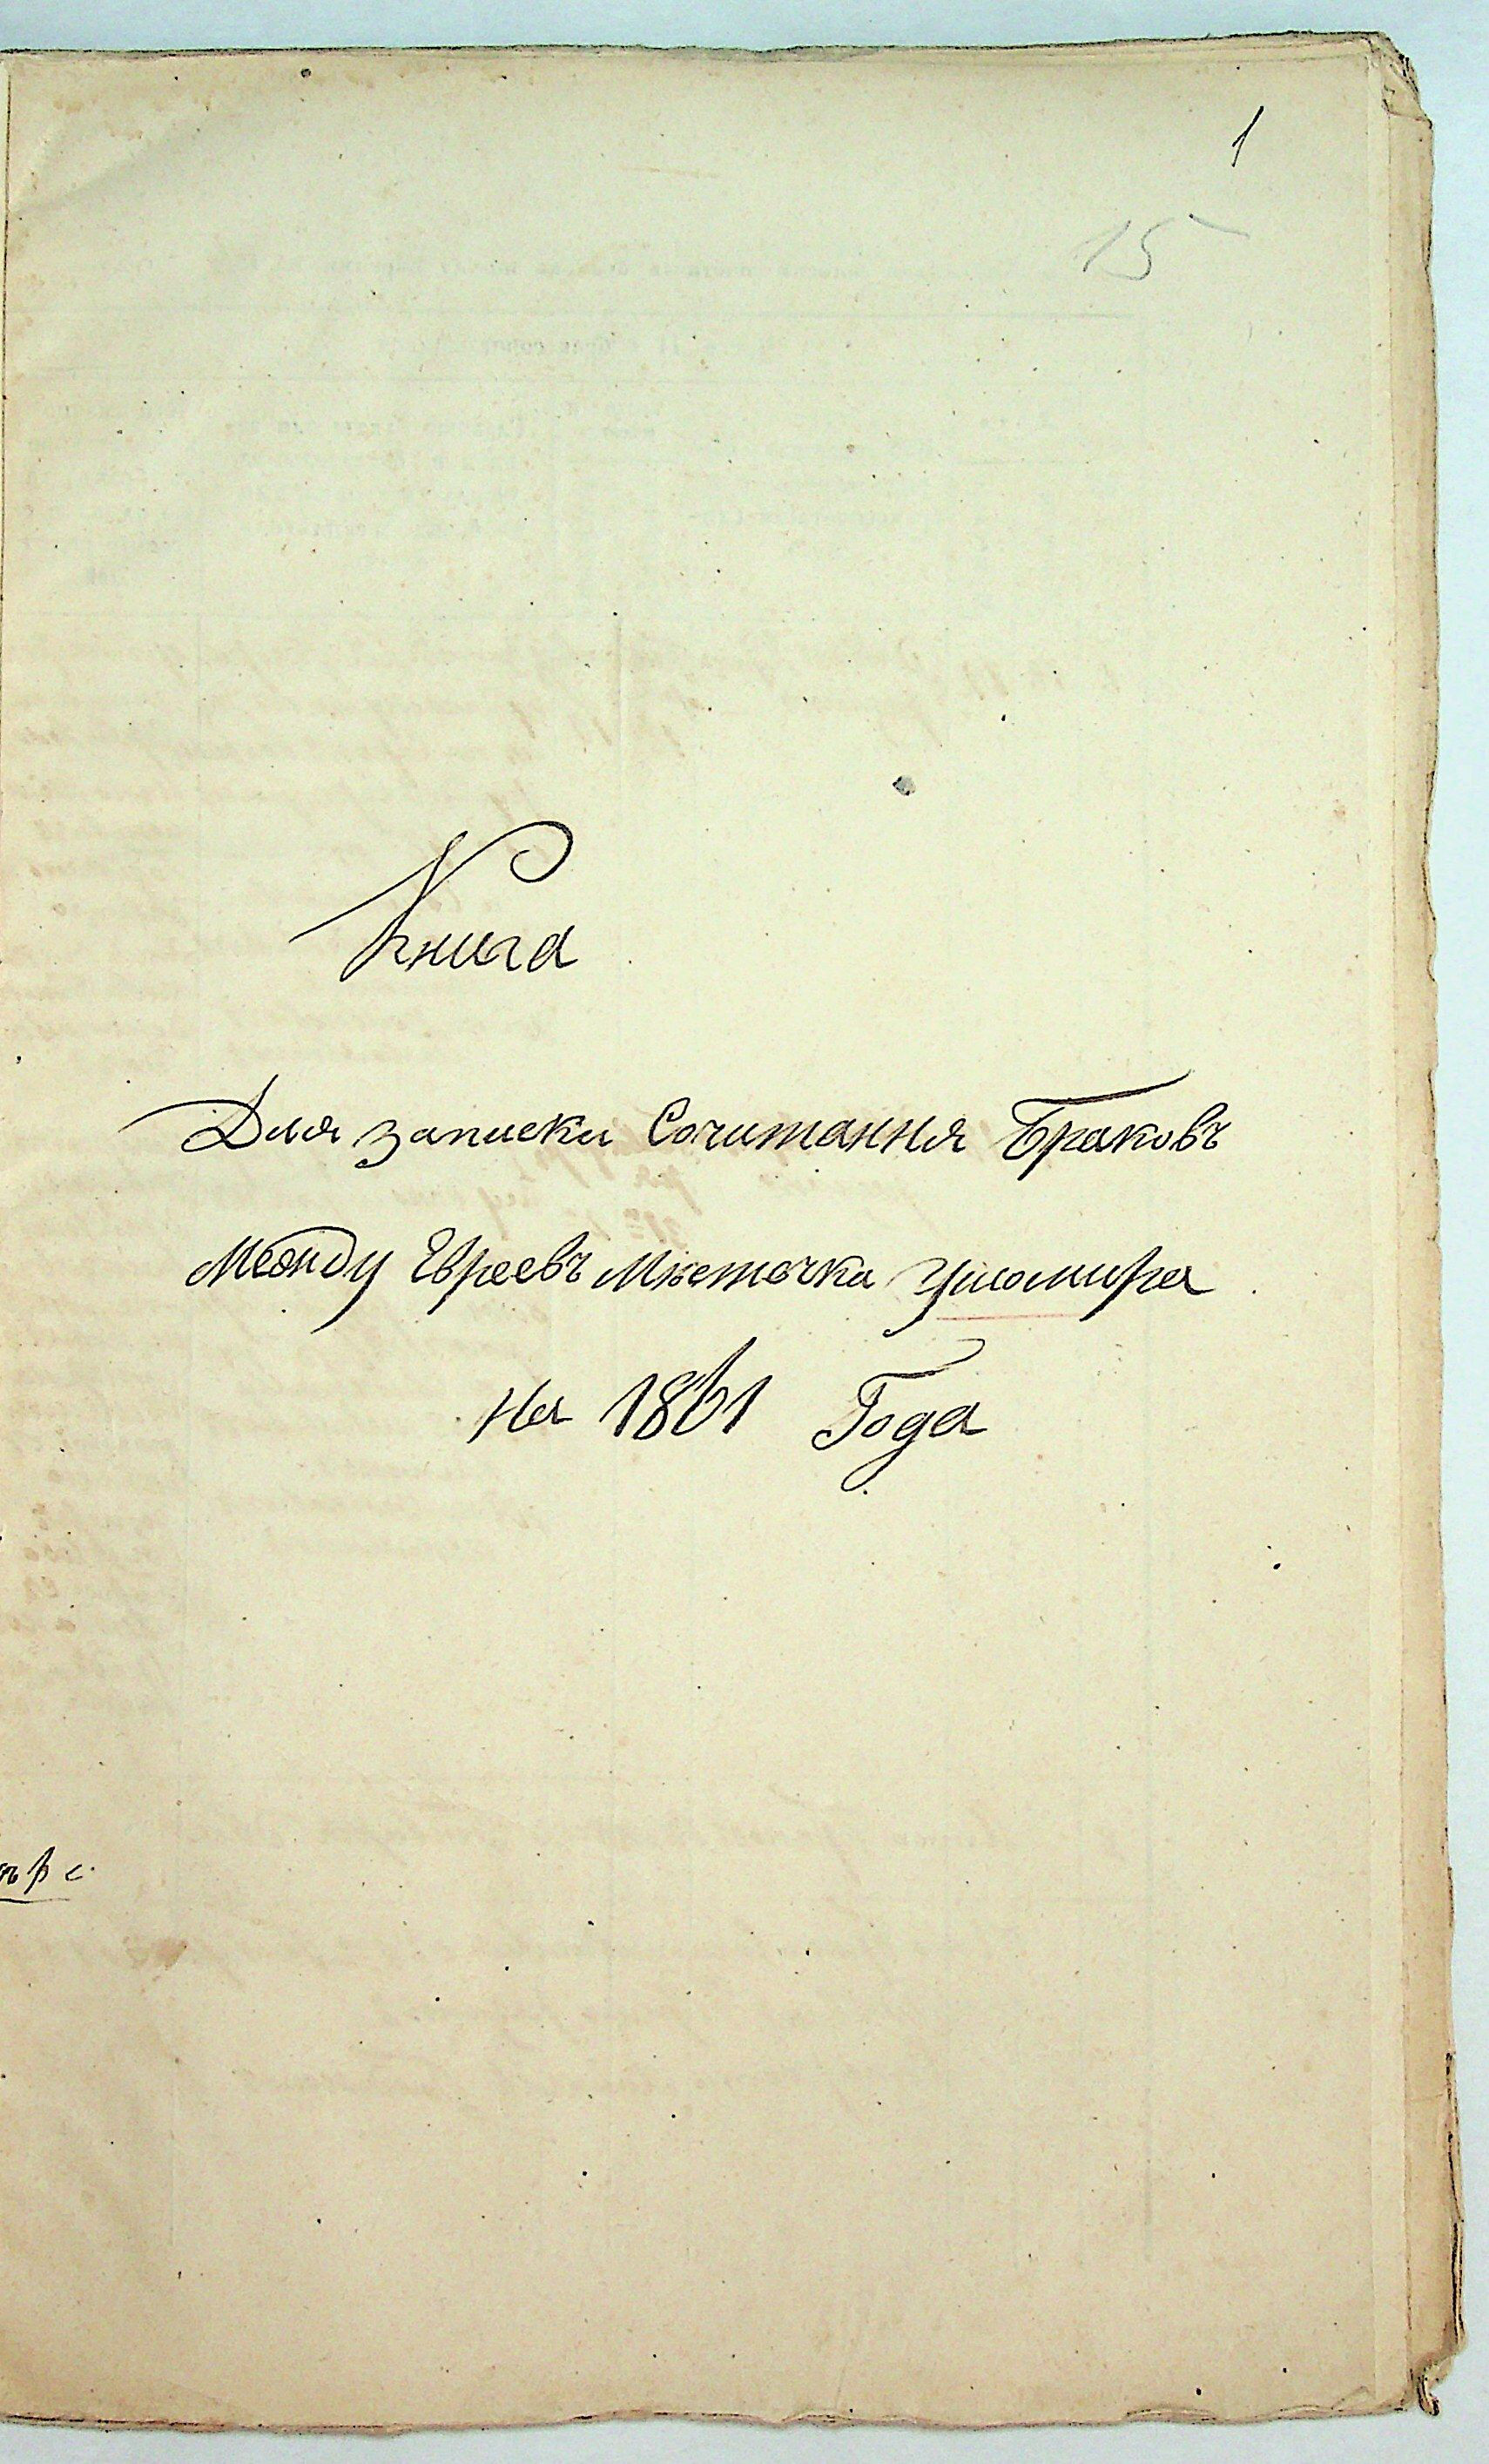 1
15
Книга
Для записки Сочитанния Браковъ
Между Евреевъ Мѣстечка Ушомира
На 1861 Года